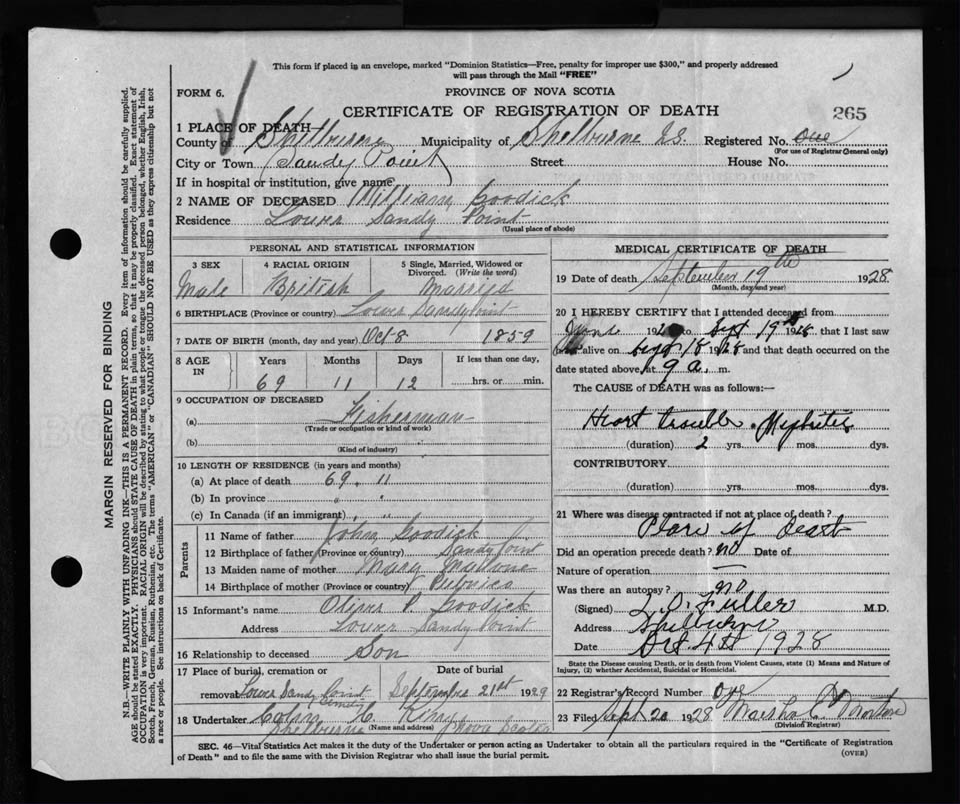 This form if placed in an envelope, marked "Dominion Statistics—Free, penalty for improper use $300," and properly addressed
will pass through the Mail "FREE"
FORM 6.
PROVINCE OF NOVA SCOTIA
CERTIFICATE OF REGISTRATION OF DEATH
265
1 PLACE OF DEATH
County of Shelburne Municipality of Shelburne Registered No. one
(For use of Registrar General only)
City or Town Sandy Point Street House No.
If in hospital or institution, give name
2 NAME OF DECEASED William Goodick
Residence Lower Sandy Point
(Usual place of abode)
PERSONAL AND STATISTICAL INFORMATION
3 SEX 4 RACIAL ORIGIN 5 Single, Married, Widowed or Divorced. (Write the word)
Male British Married
6 BIRTHPLACE (Province or country) Lower Sandy Point
7 DATE OF BIRTH (month, day and year) Oct 8 1859
8 AGE IN Years Months Days If less than one day,
69 11 12 hrs. or min.
9 OCCUPATION OF DECEASED
(a) Fisherman
(Trade or occupation or kind of work)
(b)
(Kind of industry)
10 LENGTH OF RESIDENCE (in years and months)
(a) At place of death 69 . 11
(b) In province " "
(c) In Canada (if an immigrant) " "
Parents
11 Name of father John Goodick
12 Birthplace of father (Province or country) Sandy Point
13 Maiden name of mother Mary
14 Birthplace of mother (Province or country)
15 Informant's name P. Goodick
Address Lower Sandy Point
16 Relationship to deceased Son
17 Place of burial, cremation or removal Date of burial
Lower Sandy Point September 21st 1929
18 Undertaker Colin C.
Shelburne (Name and address) Nova Scotia
MEDICAL CERTIFICATE OF DEATH
19 Date of death September 19th 1928
(Month, day and year)
20 I HEREBY CERTIFY that I attended deceased from
June 19 to Sept 19th 1928, that I last saw
alive on Sept 18 1928 and that death occurred on the
date stated above, at 9 a. m.
The CAUSE of DEATH was as follows:—
Heart trouble . Nephritis
(duration) 2 yrs. mos. dys.
CONTRIBUTORY
(duration) yrs. mos. dys.
21 Where was disease contracted if not at place of death?
Place of Death
Did an operation precede death? no Date of
Nature of operation —
Was there an autopsy? no
(Signed) Fuller M.D.
Address Shelburne
Date Oct. 4th 1928
State the Disease causing Death, or in death from Violent Causes, state (1) Means and Nature of
Injury, (2) whether Accidental, Suicidal or Homicidal.
22 Registrar's Record Number one
23 Filed Sept 20 1928
(Division Registrar)
SEC. 46—Vital Statistics Act makes it the duty of the Undertaker or person acting as Undertaker to obtain all the particulars required in the "Certificate of Registration
of Death" and to file the same with the Division Registrar who shall issue the burial permit.
(OVER)
MARGIN RESERVED FOR BINDING
N.B.—WRITE PLAINLY WITH UNFADING INK—THIS IS A PERMANENT RECORD. Every item of information should be carefully supplied.
AGE should be stated EXACTLY. PHYSICIANS should STATE CAUSE OF DEATH in plain terms, so that it may be properly classified. Exact statement of
OCCUPATION is very important. RACIAL ORIGIN will be described by stating to what people or tongue the deceased person belonged, whether English, Irish,
Scotch, French, German, Russian, Ruthenian, etc. The terms "AMERICAN" or "CANADIAN" SHOULD NOT BE USED as they express citizenship but not
a race or people. See instructions on back of Certificate.